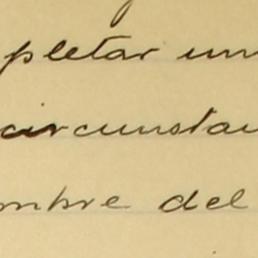 pletar un
circunstan
mbre del